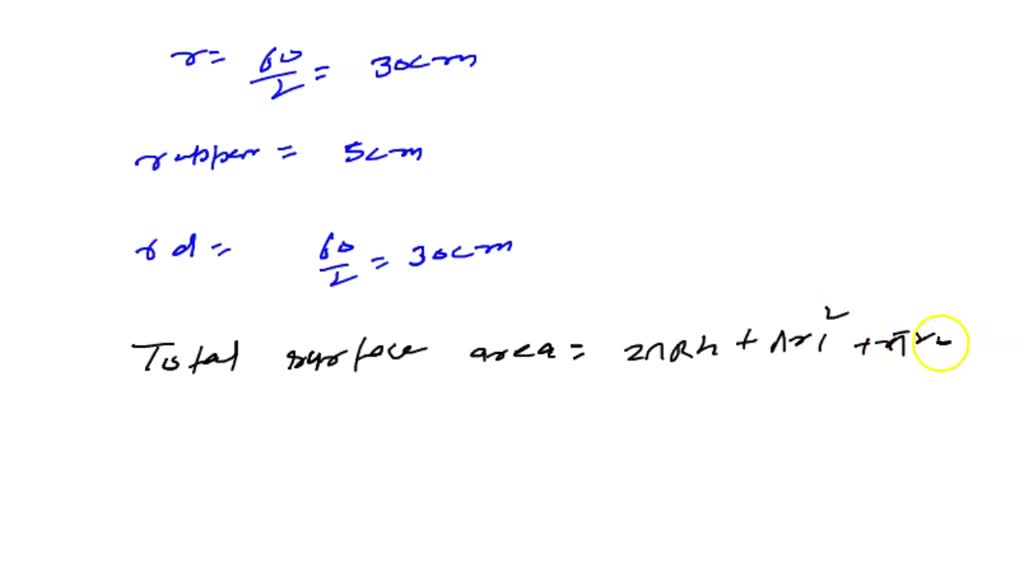 r = 60/2 = 30cm
r upper = 5cm
r d = 60/2 = 30cm
Total surface area = 2πRh + πr1² + πr2